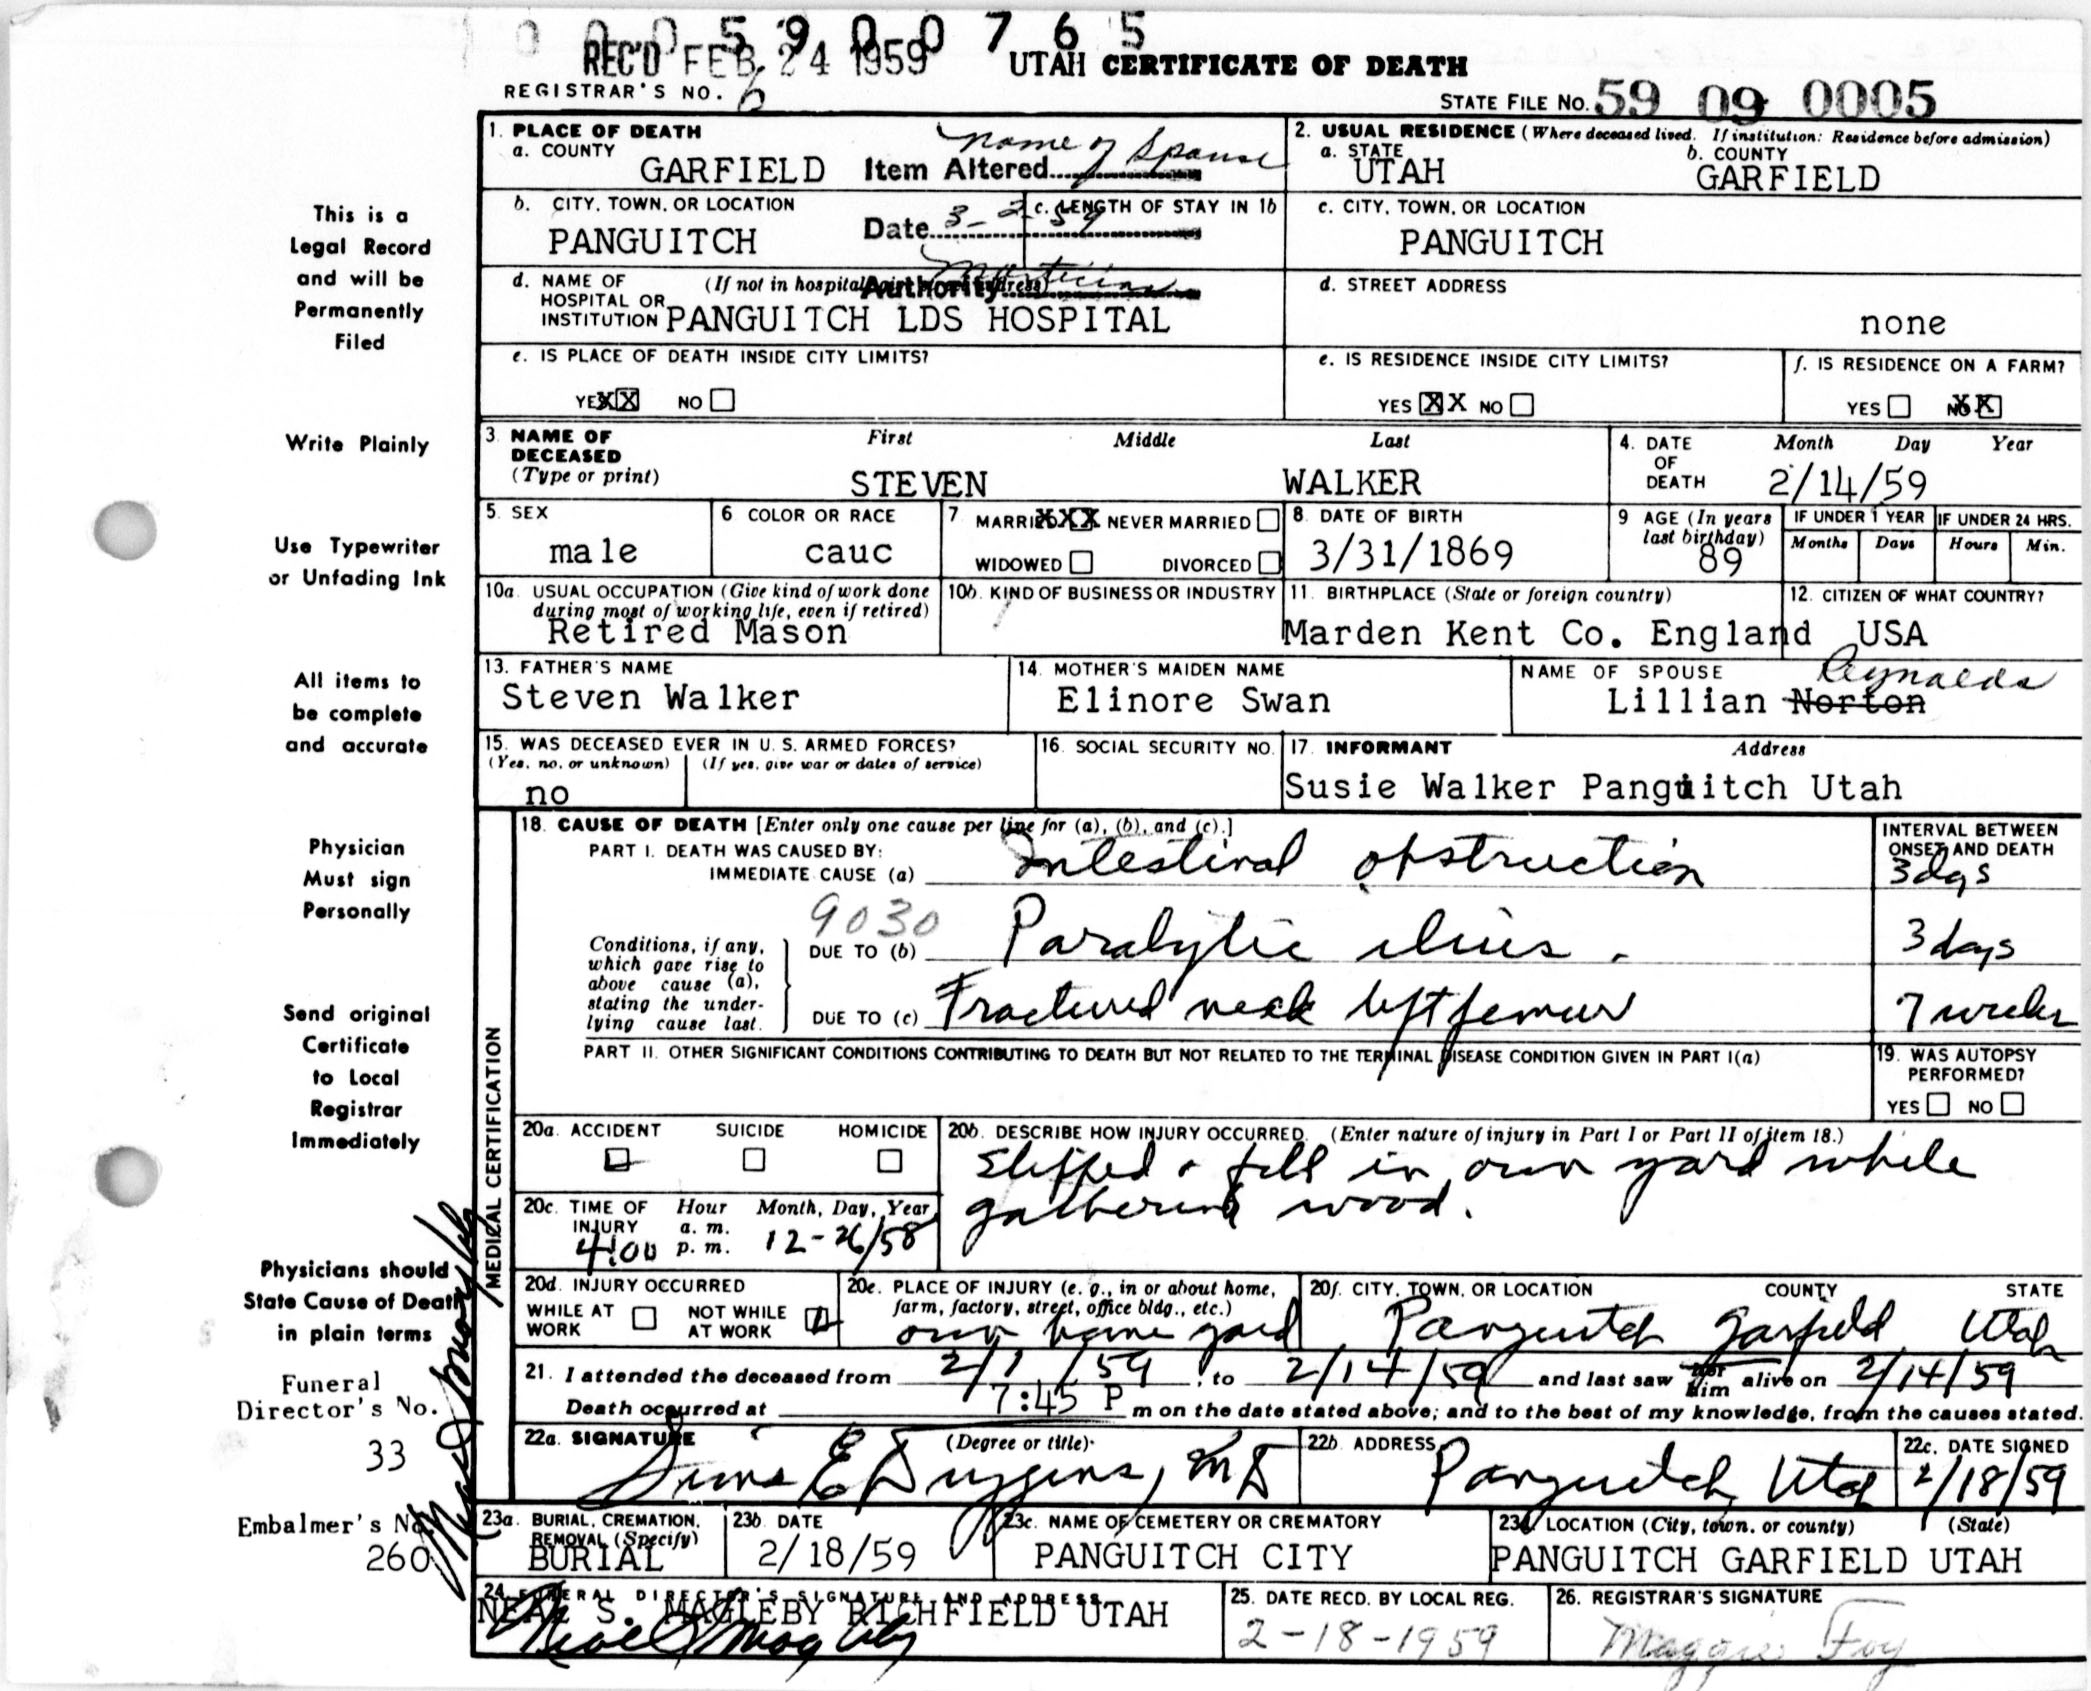 0 0 0 5 9 0 0 7 6 5
REC'D FEB 24 1959
UTAH CERTIFICATE OF DEATH
REGISTRAR'S NO. 6
STATE FILE NO. 59 09 0005
This is a
Legal Record
and will be
Permanently
Filed
Write Plainly
Use Typewriter
or Unfading Ink
All items to
be complete
and accurate
Physician
Must sign
Personally
Send original
Certificate
to Local
Registrar
Immediately
Physicians should
State Cause of Death
in plain terms
Funeral
Director's No.
33
Embalmer's No.
260
1. PLACE OF DEATH
a. COUNTY
GARFIELD
Item Altered name of Spouse
Date 3-2-59
Authority Mortician
2. USUAL RESIDENCE (Where deceased lived. If institution: Residence before admission)
a. STATE
UTAH
b. COUNTY
GARFIELD
b. CITY, TOWN, OR LOCATION
PANGUITCH
c. LENGTH OF STAY IN 1b
c. CITY, TOWN, OR LOCATION
PANGUITCH
d. NAME OF HOSPITAL OR INSTITUTION
(If not in hospital
PANGUITCH LDS HOSPITAL
d. STREET ADDRESS
none
e. IS PLACE OF DEATH INSIDE CITY LIMITS?
YES XX NO
e. IS RESIDENCE INSIDE CITY LIMITS?
YES X X NO
f. IS RESIDENCE ON A FARM?
YES NO XX
3. NAME OF DECEASED
(Type or print)
First Middle Last
STEVEN WALKER
4. DATE OF DEATH
Month Day Year
2/14/59
5. SEX
male
6. COLOR OR RACE
cauc
7. MARRIED XXX NEVER MARRIED
WIDOWED DIVORCED
8. DATE OF BIRTH
3/31/1869
9. AGE (In years last birthday)
89
IF UNDER 1 YEAR
Months Days
IF UNDER 24 HRS.
Hours Min.
10a. USUAL OCCUPATION (Give kind of work done during most of working life, even if retired)
Retired Mason
10b. KIND OF BUSINESS OR INDUSTRY
11. BIRTHPLACE (State or foreign country)
Marden Kent Co. England
12. CITIZEN OF WHAT COUNTRY?
USA
13. FATHER'S NAME
Steven Walker
14. MOTHER'S MAIDEN NAME
Elinore Swan
NAME OF SPOUSE
Reynolds
Lillian Norton
15. WAS DECEASED EVER IN U. S. ARMED FORCES?
(Yes, no, or unknown) (If yes, give war or dates of service)
no
16. SOCIAL SECURITY NO.
17. INFORMANT Address
Susie Walker Panguitch Utah
MEDICAL CERTIFICATION
18. CAUSE OF DEATH [Enter only one cause per line for (a), (b), and (c).]
PART I. DEATH WAS CAUSED BY:
IMMEDIATE CAUSE (a) Intestinal obstruction
INTERVAL BETWEEN ONSET AND DEATH
3 days
9030
Conditions, if any, which gave rise to above cause (a), stating the underlying cause last.
DUE TO (b) Paralytic ileus.
3 days
DUE TO (c) Fractured neck left femur
7 weeks
PART II. OTHER SIGNIFICANT CONDITIONS CONTRIBUTING TO DEATH BUT NOT RELATED TO THE TERMINAL DISEASE CONDITION GIVEN IN PART I(a)
19. WAS AUTOPSY PERFORMED?
YES NO
20a. ACCIDENT SUICIDE HOMICIDE
20b. DESCRIBE HOW INJURY OCCURRED. (Enter nature of injury in Part I or Part II of item 18.)
Slipped & fell in own yard while
gathering wood.
20c. TIME OF INJURY
Hour Month, Day, Year
a. m.
4:00 p. m. 12-26/58
20d. INJURY OCCURRED
WHILE AT WORK NOT WHILE AT WORK
20e. PLACE OF INJURY (e. g., in or about home, farm, factory, street, office bldg., etc.)
own home yard
20f. CITY, TOWN, OR LOCATION COUNTY STATE
Panguitch Garfield Utah
21. I attended the deceased from 2/1/59, to 2/14/59 and last saw him alive on 2/14/59
Death occurred at 7:45 P m on the date stated above; and to the best of my knowledge, from the causes stated.
22a. SIGNATURE (Degree or title)
Sims E Duggins, MD
22b. ADDRESS
Panguitch, Utah
22c. DATE SIGNED
2/18/59
23a. BURIAL, CREMATION, REMOVAL (Specify)
BURIAL
23b. DATE
2/18/59
23c. NAME OF CEMETERY OR CREMATORY
PANGUITCH CITY
23d. LOCATION (City, town, or county) (State)
PANGUITCH GARFIELD UTAH
24. FUNERAL DIRECTOR'S SIGNATURE AND ADDRESS
NEAL S. MAGLEBY RICHFIELD UTAH
Neal S Magleby
25. DATE RECD. BY LOCAL REG.
2-18-1959
26. REGISTRAR'S SIGNATURE
Maggie Foy
Neal S Magleby